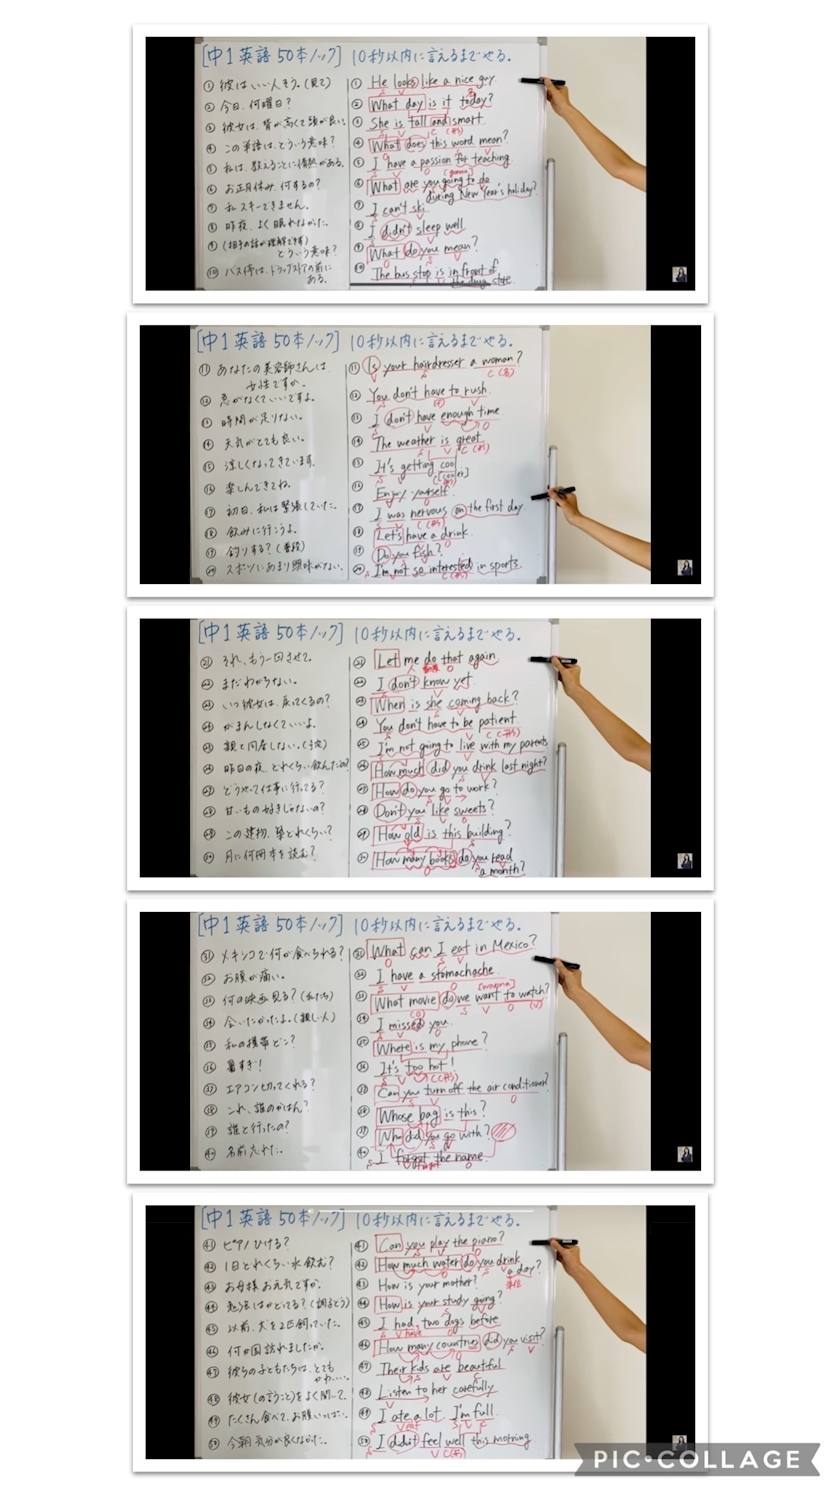 [中1英語 50本ノック] 10秒以内に言えるまでやる。
① 彼はいい人そう。(見て)
② 今日、何曜日?
③ 彼女は、背が高くて頭が良い。
④ この単語は、どういう意味?
⑤ 私は、教えることに情熱がある。
⑥ お正月休み、何するの?
⑦ 私、スキーできません。
⑧ 昨夜、よく眠れなかった。
⑨ (相手の話が理解できず)
どういう意味?
⑩ バス停は、ドラッグストアの前に
ある。
① He looks like a nice guy.
② What day is it today?
③ She is tall and smart.
④ What does this word mean?
⑤ I have a passion for teaching.
⑥ What are you going to do
during New Year's holiday?
⑦ I can't ski.
⑧ I didn't sleep well
⑨ What do you mean?
⑩ The bus stop is in front of
the drug store.
[中1英語 50本ノック] 10秒以内に言えるまでやる。
⑪ あなたの美容師さんは、
女性ですか。
⑫ 急がなくていいですよ。
⑬ 時間が足りない。
⑭ 天気がとても良い。
⑮ 涼しくなってきています。
⑯ 楽しんできてね。
⑰ 初日、私は緊張していた。
⑱ 飲みに行こうよ。
⑲ 釣りする?(普段)
⑳ スポーツにあまり興味がない。
⑪ Is your hairdresser a woman?
⑫ You don't have to rush.
⑬ I don't have enough time
⑭ The weather is great.
⑮ It's getting cool
⑯ Enjoy yourself.
⑰ I was nervous on the first day.
⑱ Let's have a drink.
⑲ Do you fish?
⑳ I'm not so interested in sports.
[中1英語 50本ノック] 10秒以内に言えるまでやる。
㉑ それ、もう一回させて。
㉒ まだわからない。
㉓ いつ彼女は、戻ってくるの?
㉔ がまんしなくていいよ。
㉕ 親と同居しない。(予定)
㉖ 昨日の夜、どれくらい飲んだの?
㉗ どうやって仕事に行ってる?
㉘ 甘いもの好きじゃないの?
㉙ この建物、築どれくらい?
㉚ 月に何冊本を読む?
㉑ Let me do that again
㉒ I don't know yet
㉓ When is she coming back?
㉔ You don't have to be patient.
㉕ I'm not going to live with my parents
㉖ How much did you drink last night?
㉗ How do you go to work?
㉘ Don't you like sweets?
㉙ How old is this building?
㉚ How many books do you read
a month?
[中1英語 50本ノック] 10秒以内に言えるまでやる。
㉛ メキシコで何が食べられる?
㉜ お腹が痛い。
㉝ 何の映画見る?(私たち)
㉞ 会いたかったよ。(親しい人)
㉟ 私の携帯どこ?
㊱ 暑すぎ!
㊲ エアコン切ってくれる?
㊳ これ、誰のかばん?
㊴ 誰と行ったの?
㊵ 名前忘れた。
㉛ What can I eat in Mexico?
㉜ I have a stomachache
㉝ What movie do we want to watch?
㉞ I missed you.
㉟ Where is my phone?
㊱ It's too hot!
㊲ Can you turn off the air conditioner?
㊳ Whose bag is this?
㊴ Who did you go with?
㊵ I forgot the name.
[中1英語 50本ノック] 10秒以内に言えるまでやる。
㊶ ピアノひける?
㊷ 1日どれくらい水飲む?
㊸ お母様お元気ですか。
㊹ 勉強はかどってる?(調子どう)
㊺ 以前、犬を2匹飼っていた。
㊻ 何か国訪れましたか。
㊼ 彼らの子どもたちは、とても
かわいい。
㊽ 彼女(の言うこと)をよく聞いて。
㊾ たくさん食べて、お腹いっぱい。
㊿ 今朝気分が良くなかった。
㊶ Can you play the piano?
㊷ How much water do you drink
a day?
㊸ How is your mother?
㊹ How is your study going?
㊺ I had two dogs before
㊻ How many countries did you visit?
㊼ Their kids are beautiful
㊽ Listen to her carefully
㊾ I ate a lot. I'm full.
㊿ I didn't feel well this morning
PIC•COLLAGE